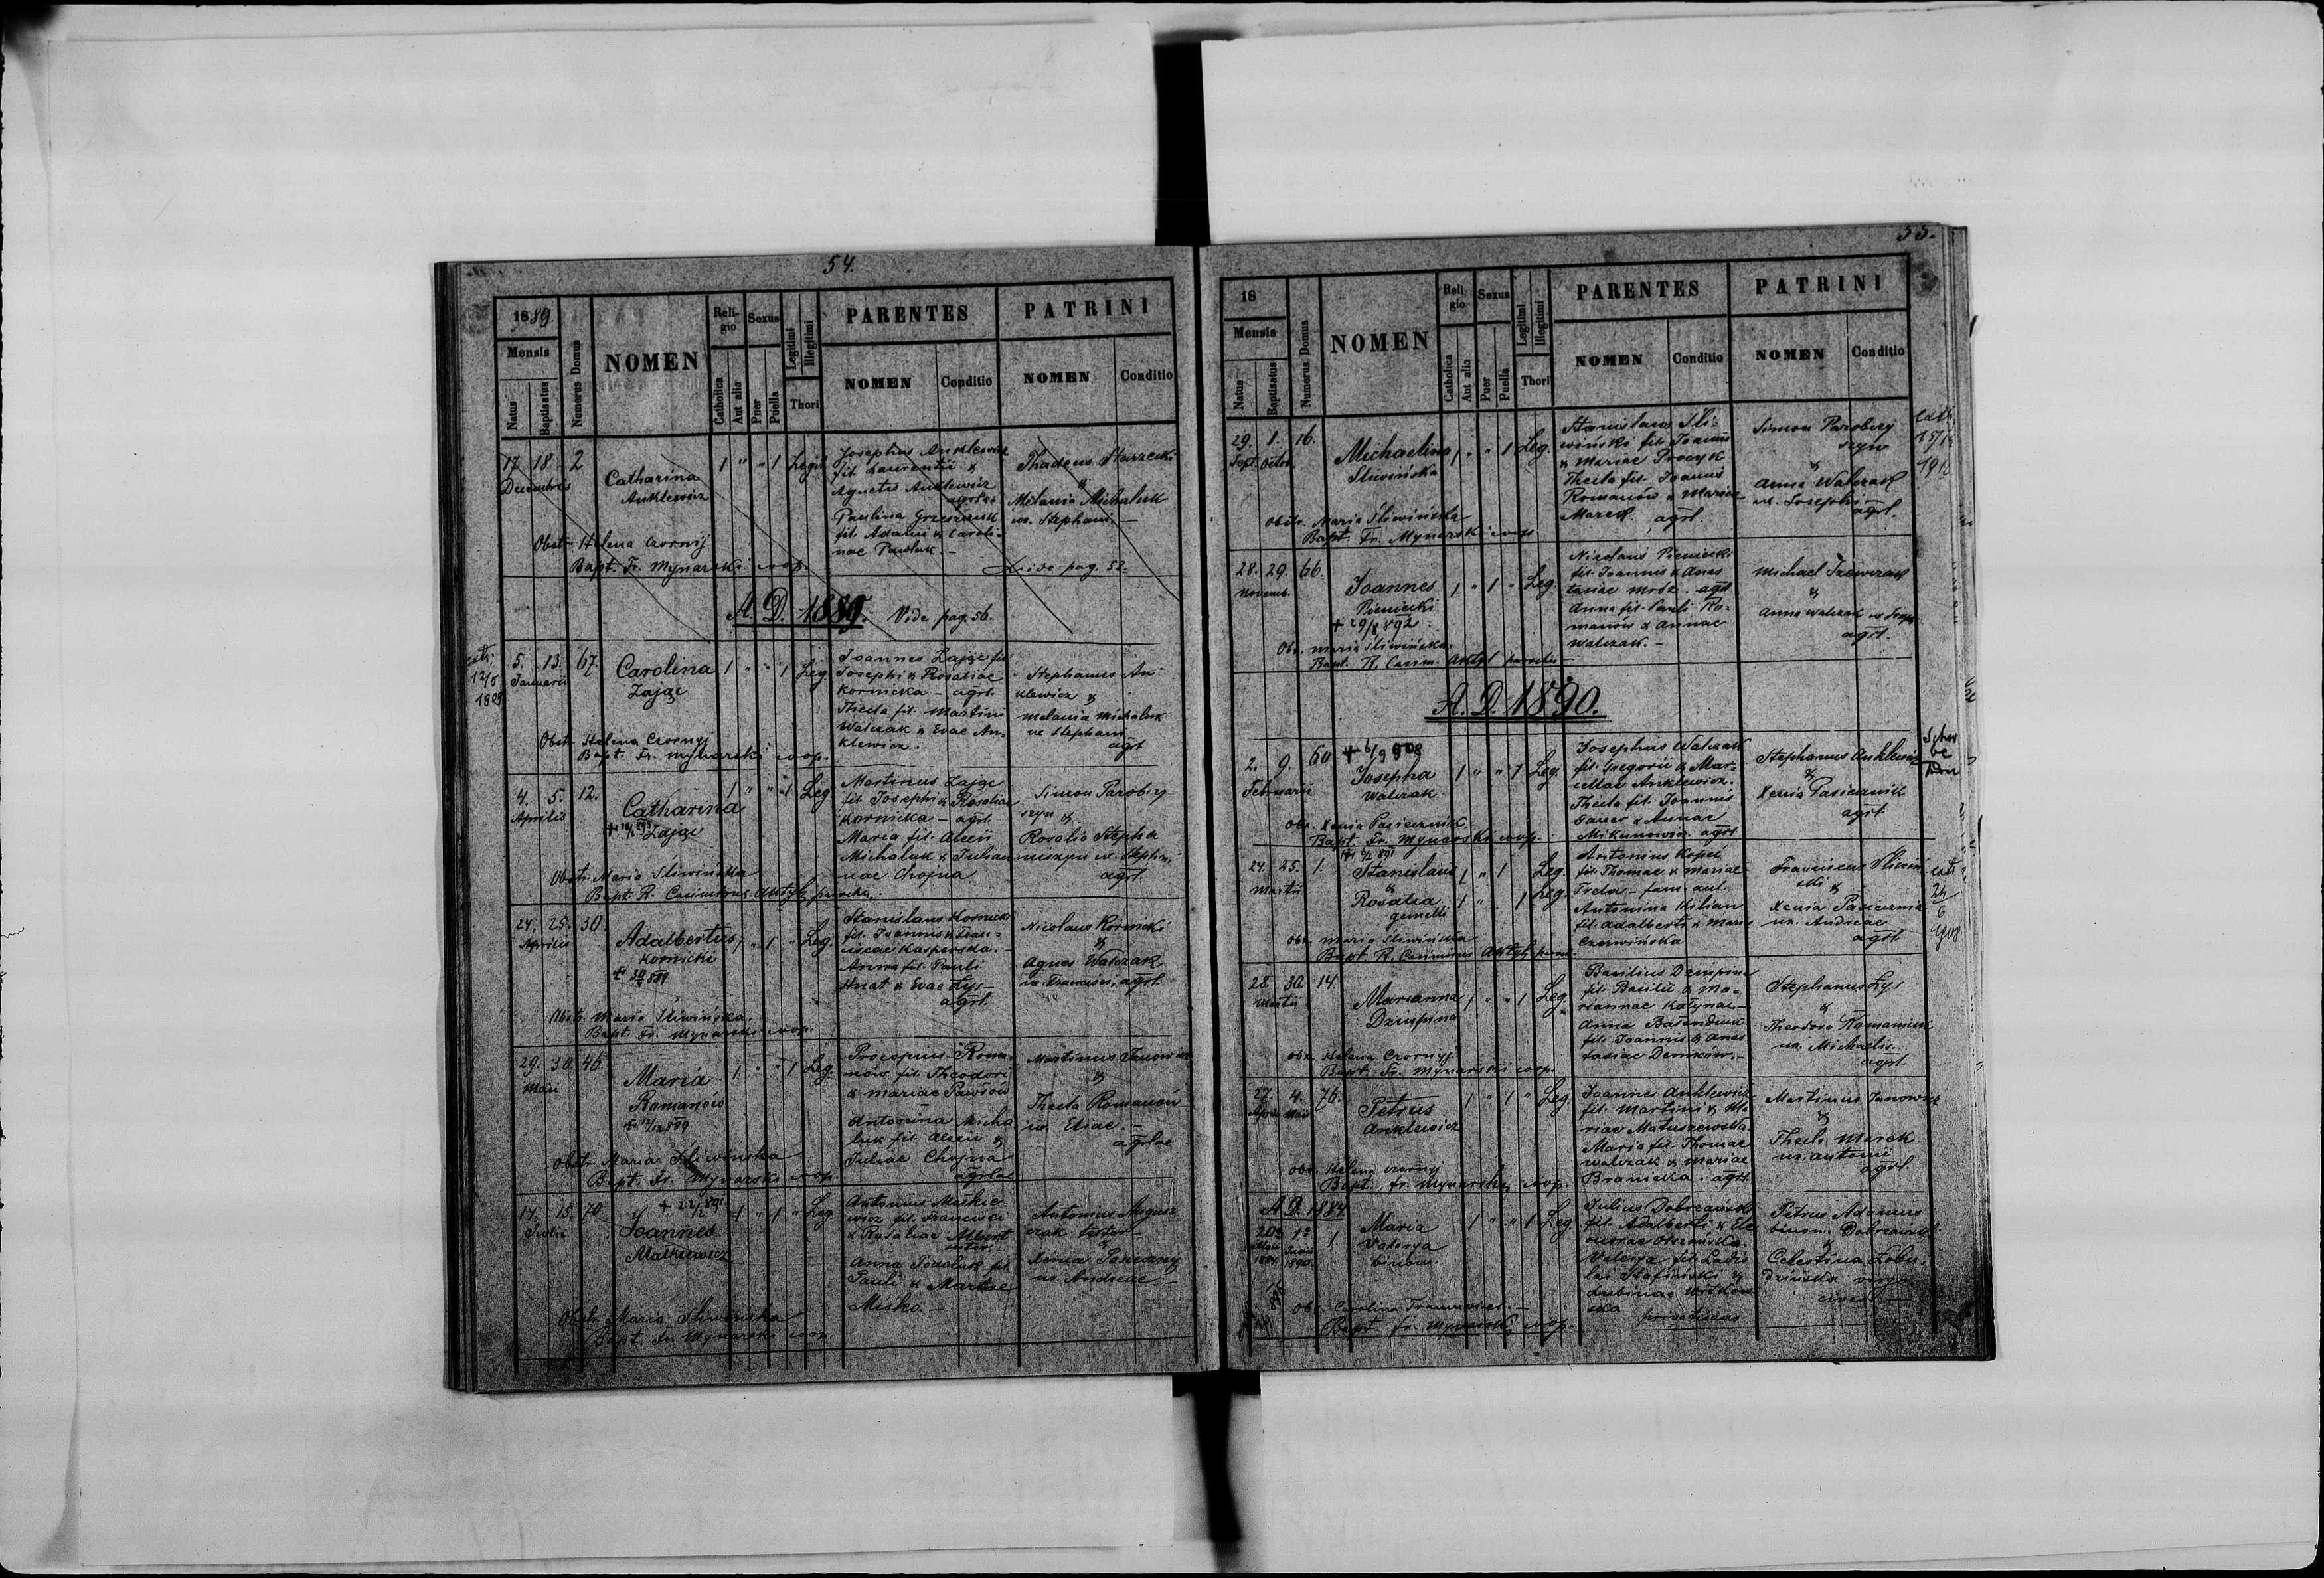 54.
1889.
Mensis
Natus
Baptisatus
Numerus Domus
NOMEN
Reli-
gio
Catholica
Aut alia
Sexus
Puer
Puella
Legitimi
Illegitimi
Thori
PARENTES
NOMEN
Conditio
PATRINI
NOMEN
Conditio
17 18 2
Decembris
Catharina
Anklewicz
1 " " 1
Josephus Anklewicz
fil. Laurentii &
Agnetis Anklewicz
Paulina Grzeszczuk
fil. Adalii & Caroli-
nae Pawluk.-
Thadeus Starzecki
&
Melania Michaluk
ux. Stephani.-
Obstr. Helena Czornij
Bapt. Fr. Mynarski coop.
Vide pag. 52.
A. D. 1889. Vide pag. 56.
12/5
5. 13. 67.
Januarii
Carolina
Zając
1 " " 1 Leg
Joannes Zając fil
Josephi & Rosaliae
Kornicka - agrl.
Thecla fil. Martini
Walczak & Evae An-
klewicz.
Stephanus An-
klewicz &
Melania Michaluk
ux Stephani
agrl
Obstr. Helena Czornyj
Bapt. Fr. Mynarski coop.
4. 5. 12.
Aprilis
Catharina
Zając
1 " " 1 Leg
Martinus Zając
fil Josephi & Rosaliae
Kornicka - agrl.
Maria fil. Alexii
Michaluk & Julian
nae Chojna
Simon Parobcy
szyn &
Rosalia Stepha
niszyn ux. Stephani
agrl.
Obstr. Maria Śliwińska
Bapt. R. Casimirus Aktyl parochus.
24. 25. 30.
Aprilis
Adalbertus
Kornicki
+ 30/4 889
1 " 1 " Leg.
Stanislaus Kornicki
fil. Joannis & Fran-
ciscae Kasperska.-
Anna fil. Pauli
Hnat & Evae Łys-
agrl.
Nicolaus Kornicki
&
Agnes Walczak
ux. Francisci, agrl.
Obstr. Maria Śliwińska.
Bapt. Fr. Mynarski coop.
29. 30. 46.
Maii
Maria
Romanów
+ 12/12 889
1 " " 1 Leg.
Procopius Roma-
nów fil. Theodori
& Mariae Pawłów
Antonina Micha
luk fil. Alexii &
Juliae Chojna
agrlae
Martinus Janowicz
&
Thecla Romanów
ux. Eliae.-
agrlae
Obstr. Maria Śliwińska
Bapt. Fr. Mynarski coop.
14. 15. 70.
Julii
+ 22/2 891
Joannes
Maśkiewicz
1 " 1 " Leg
Antonius Maśkie-
wicz fil. Francisci
& Rosaliae Albert
sutor.
Anna Podoluk fil.
Pauli & Martae
Miśko.-
Antonius Magusz
czak testor
&
Xenia Pasieczny
ux. Andreae -
Obstr. Maria Śliwińska
Bapt. Fr. Mynarski coop.
55.
18
Mensis
Natus
Baptisatus
Numerus Domus
NOMEN
Reli-
gio
Catholica
Aut alia
Sexus
Puer
Puella
Legitimi
Illegitimi
Thori
PARENTES
NOMEN
Conditio
PATRINI
NOMEN
Conditio
29. 1. 16.
Sept. Octob.
Michaelina
Śliwińska
1 " " 1 Leg.
Stanislaus Śli-
wiński fil. Joannis
& Mariae Procyk
Thecla fil. Joannis
Romanów & Mariae
Marek. agrl.
Simon Parobcy
szyn
&
Anna Walczak
ux. Josephi
agrl.
1912
Obstr. Maria Śliwińska
Bapt. Fr. Mynarski coop
28. 29. 66.
Novemb.
Joannes
Pieniecki
1 " 1 " Leg.
Nicolaus Pieniecki
fil. Joannis & Anas
tasiae Mróz. agrl
Anna fil. Pauli Ro-
manów & Annae
Walczak.-
Michael
&
Anna Walczak ux Josephi
agrl.
Ob. Maria Śliwińska.
Bapt. R. Casim. Aktyl parochus
A. D. 1890.
2. 9. 60
Februarii
Josepha
Walczak
1 " " 1 Leg.
Josephus Walczak
fil. Gregorii & Mar-
cellae Anklewicz.
Thecla fil. Joannis
Gauer & Annae
Mikunowicz. agrl
Stephanus Anklewicz
&
Xenia Pasiecznik
agrl
Obs. Xenia Pasiecznik.
Bapt. Fr. Mynarski coop.
24. 25. 1.
Martii
Stanislaus
&
Rosalia
gemelli
1 " 1 Leg
1 " 1 Leg.
Antonius Kopeć
fil. Thomae & Mariae
Trela - fam. aul.
Antonina Kilian
fil. Adalberti & Mariae
Czerwińska
Franciscus Śliwiń-
ski &
Xenia Pasiecznik
ux. Andreae
agrl.
24
6
908
Obs. Maria Śliwińska
Bapt. R. Casimirus Aktyl paroch.
28. 30. 14.
Martii
Marianna
Dziuspina
1 " " 1 Leg.
fil. Basilii & Ma-
riannae Katynae-
Anna Bałandiuk
fil. Joannis & Anas
tasiae Demków.-
Stephanus Łys
&
Theodora Romaniuk
ux. Michaelis.-
agrl
Obs. Helena Czornyj
Bapt. Fr. Mynarski coop.
27. 4. 76.
Aprilis Maii
Petrus
Anklewicz
1 " 1 " Leg.
Joannes Anklewicz
fil. Martini & Ma
riae Matuszewska.
Maria fil. Thomae
Walczak & Mariae
Branicka. agrl.
Martinus Janowicz
&
Thecla Marek
ux. Antonii
agrl.
Obs. Helena Czornyj
Bapt. Fr. Mynarski, coop.
A. D. 1884
20a 1a 1
Maii Junii
1884. 1890.
Maria
Valerya
binom.
1 " " 1 Leg.
Julius Dobrzański
fil. Adalberti & Ele
onorae
Valerya fil. Ladis
lai &
Ludinae Witkow
ska
privatisans
Petrus Adamus
binom. Dobrzański
&
Celestina Łobo-
dzińska virgo
Obs. Carolina
Bapt. Fr. Mynarski, coop.